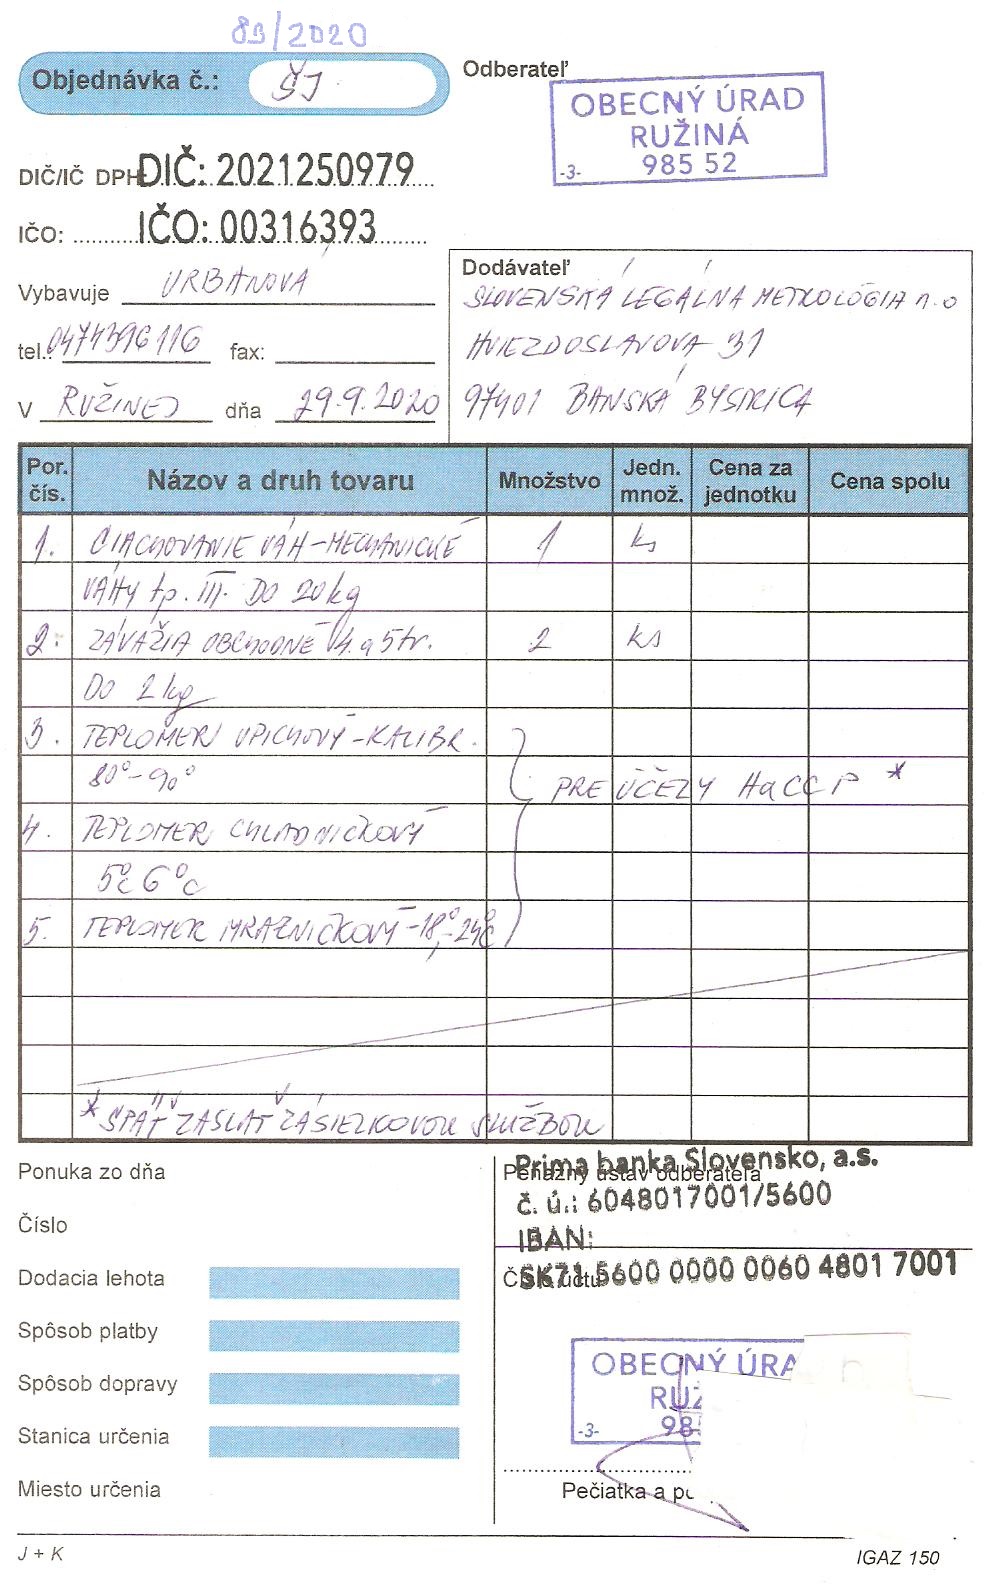 89/2020
Objednávka č.: ŠJ
Odberateľ
OBECNÝ ÚRAD
RUŽINÁ
-3- 985 52
DIČ/IČ DPH DIČ: 2021250979
IČO: IČO: 00316393
Vybavuje URBANOVÁ
tel.: 0474396116 fax:
V RUŽINEJ dňa 29.9.2020
Dodávateľ
SLOVENSKÁ LEGÁLNA METROLÓGIA n.o
HVIEZDOSLAVOVA 31
97401 BANSKÁ BYSTRICA
Por. čís. Názov a druh tovaru Množstvo Jedn. množ. Cena za jednotku Cena spolu
1. CIACHOVANIE VÁH-MECHANICKÉ 1 ks
VÁHY tp. III. DO 20kg
2. ZÁVAŽIA OBCHODNÉ 4. a 5 tr. 2 ks
DO 2 kg
3. TEPLOMER VPICHOVÝ-KALIBR.
80°-90°
PRE ÚČELY HaCCP *
4. TEPLOMER CHLADNIČKOVÝ
5°C 6°C
5. TEPLOMER MRAZNIČKOVÝ -18°, -24°C
* SPÄŤ ZASLAŤ ZÁSIELKOVOU SLUŽBOU
Ponuka zo dňa
Číslo
Dodacia lehota
Spôsob platby
Spôsob dopravy
Stanica určenia
Miesto určenia
Peňažný ústav odberateľa
Prima banka Slovensko, a.s.
č. ú.: 6048017001/5600
IBAN:
Číslo účtu
SK71 5600 0000 0060 4801 7001
OBECNÝ ÚRA
RUŽ
-3- 985
Pečiatka a po
J + K
IGAZ 150